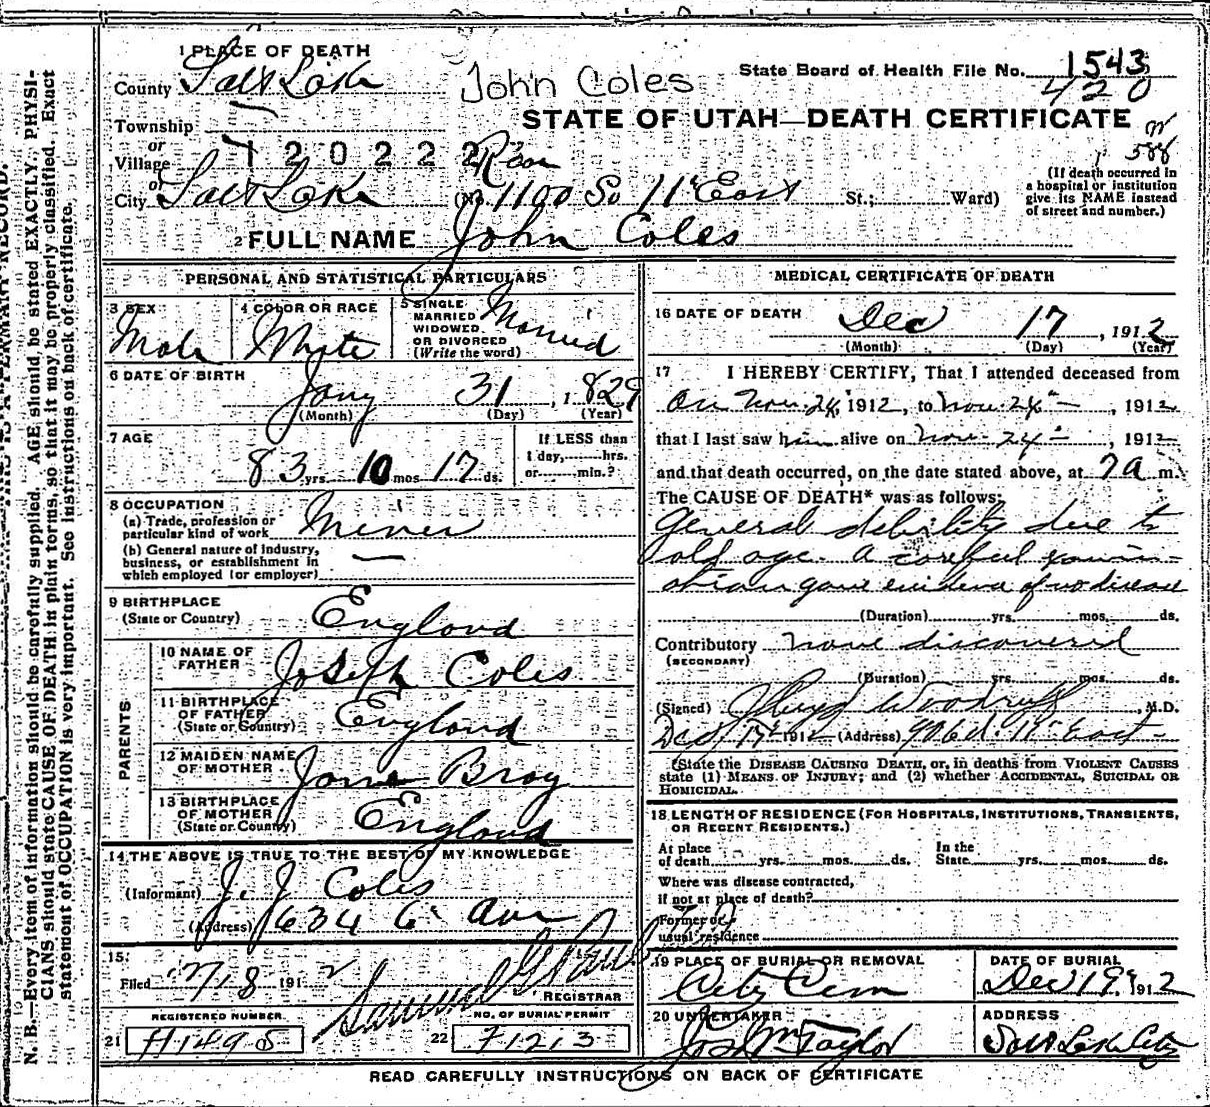 1 PLACE OF DEATH
County Salt Lake
John Coles
State Board of Health File No. 1543
420
STATE OF UTAH—DEATH CERTIFICATE
588
Township
or
Village
120222
or
City Salt Lake (No. 1100 So 11 East St.; Ward)
(If death occurred in
a hospital or institution
give its NAME instead
of street and number.)
2 FULL NAME John Coles
PERSONAL AND STATISTICAL PARTICULARS
3 SEX
Male
4 COLOR OR RACE
White
5 SINGLE
MARRIED
WIDOWED
OR DIVORCED
(Write the word)
Married
6 DATE OF BIRTH
Jany 31, 1829
(Month) (Day) (Year)
7 AGE
83 yrs. 10 mos 17 ds.
If LESS than
1 day, hrs.
or min.?
8 OCCUPATION
(a) Trade, profession or
particular kind of work Miner
(b) General nature of industry,
business, or establishment in
which employed (or employer) —
9 BIRTHPLACE
(State or Country) England
PARENTS
10 NAME OF
FATHER Joseph Coles
11 BIRTHPLACE
OF FATHER
(State or Country) England
12 MAIDEN NAME
OF MOTHER Jane Bray
13 BIRTHPLACE
OF MOTHER
(State or Country) England
14 THE ABOVE IS TRUE TO THE BEST OF MY KNOWLEDGE
(Informant) J. J. Coles
(Address) 634 6" Ave
15.
Filed 12/18 1912
Samuel G Paul
REGISTRAR
REGISTERED NUMBER.
21 H1498
NO. OF BURIAL PERMIT
22 F1213
MEDICAL CERTIFICATE OF DEATH
16 DATE OF DEATH
Dec 17, 1912
(Month) (Day) (Year)
17 I HEREBY CERTIFY, That I attended deceased from
On Nov. 24, 1912, to Nov. 24, 1912
that I last saw him alive on Nov. 24, 1912
and that death occurred, on the date stated above, at 7 a m.
The CAUSE OF DEATH* was as follows:
General debility due to
old age. A careful exam-
ination gave evidence of no disease
(Duration) yrs. mos. ds.
Contributory none discovered
(SECONDARY)
(Duration) yrs. mos. ds.
(Signed) Woodruff, M.D.
Dec 17 1912 (Address) East
*State the DISEASE CAUSING DEATH, or, in deaths from VIOLENT CAUSES
state (1) MEANS OF INJURY; and (2) whether ACCIDENTAL, SUICIDAL OR
HOMICIDAL.
18 LENGTH OF RESIDENCE (FOR HOSPITALS, INSTITUTIONS, TRANSIENTS,
OR RECENT RESIDENTS.)
At place
of death yrs. mos. ds.
In the
State yrs. mos. ds.
Where was disease contracted,
if not at place of death?
Former or
usual residence
19 PLACE OF BURIAL OR REMOVAL
City Cem
DATE OF BURIAL
Dec 19, 1912
20 UNDERTAKER
Jos Wm Taylor
ADDRESS
Salt Lake City
READ CAREFULLY INSTRUCTIONS ON BACK OF CERTIFICATE
N. B.—Every item of information should be carefully supplied. AGE should be stated EXACTLY. PHYSI-
CIANS should state CAUSE OF DEATH in plain terms, so that it may be properly classified. Exact
statement of OCCUPATION is very important. See instructions on back of certificate.